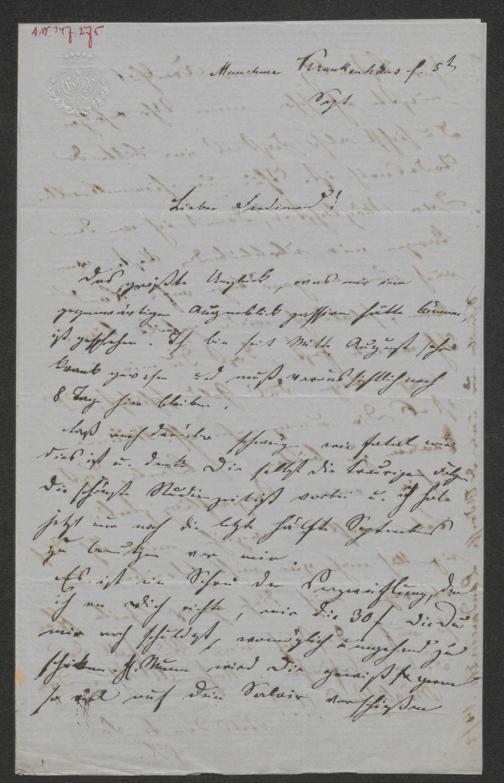 H.N. 147.275
Münchner Krankenhaus f. 5t
Sept.
Lieber Ferdinand!
Das größte Unglück was mir im
gegenwärtigen Augenblick passiren hätte können,
ist geschehen. Ich bin seit Mitte August sehr
krank gewesen und muß voraussichtlich noch
8 Tage hier bleiben.
Laß mich darüber schweigen, wie fatal mir
dies ist u. denke Dir selbst die traurigen
Die schönste Studienzeit ist vorbei u. ich habe
jetzt nur noch die letzte Hälfte September
zu benutzen vor mir.
Es ist ein Schrei der Verzweiflung, den
ich an Dich richte, mir die 30 f die Du
mir noch schuldest, womöglich umgehend zu
schicken. H. Mumm wird Dir gewiß gern
so viel auf Dein Salair vorschießen